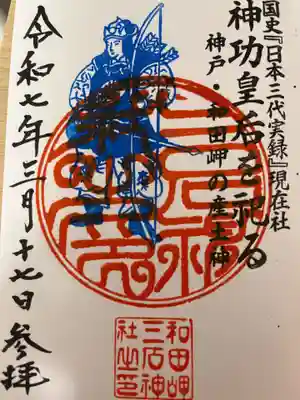 国史『日本三代実録』現在社
神功皇后を祀る
神戸・和田岬の産土神
令和七年三月十七日参拝
三石神社
和田岬
三石神
社之印